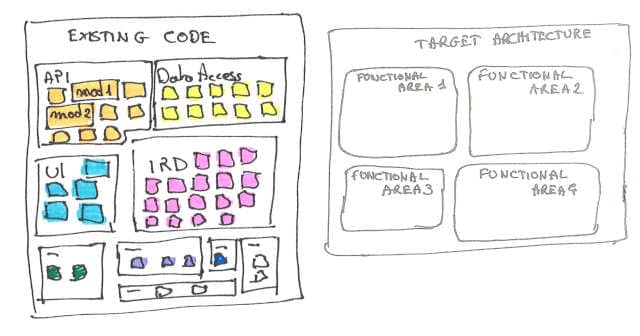 EXISTING CODE
API
mod1
mod2
Data Access
UI
IRD
TARGET ARCHITECTURE
FUNCTIONAL
AREA 1
FUNCTIONAL
AREA 2
FUNCTIONAL
AREA 3
FUNCTIONAL
AREA 4